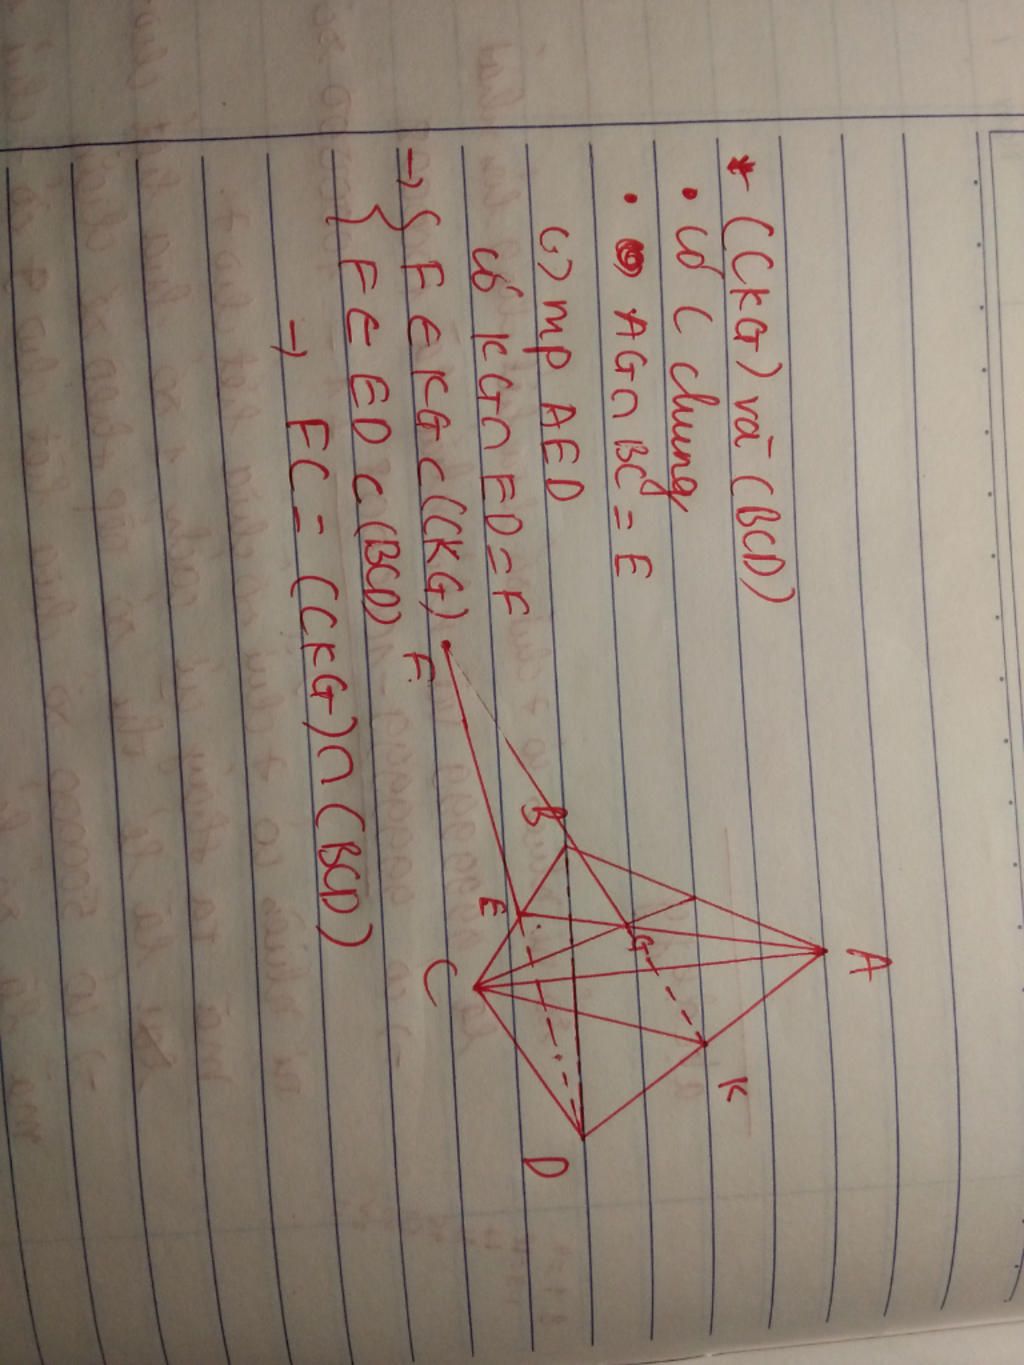 * (CKG) và (BCD)
• có C chung
• AG∩BC = E
G) mp AED
có KG∩ED=F
→ { F ∈ KG ⊂ (CKG)
{ F ∈ ED ⊂ (BCD)
→ FC = (CKG)∩(BCD)
A
K
B
G
F
E
C
D